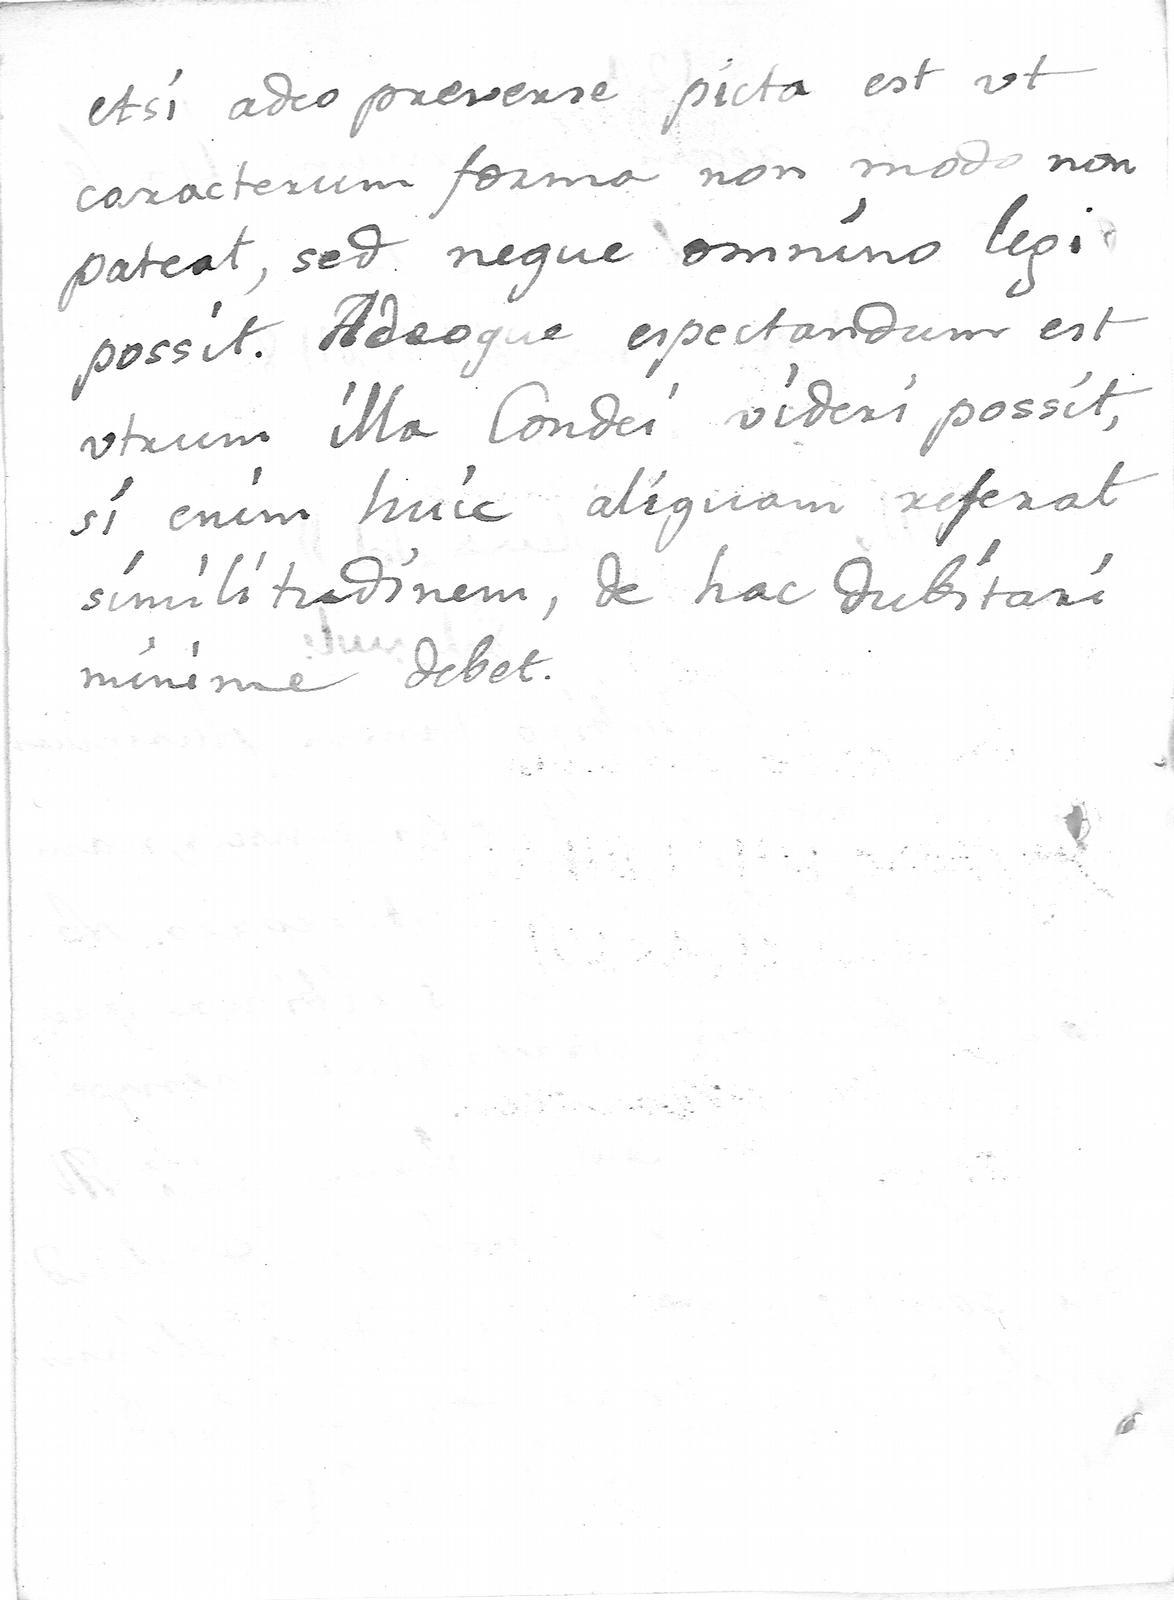 etsi adeo preverse picta est vt
caracterum forma non modo non
pateat, sed neque omnino legi
possit. Adeoque espectandum est
vtrum illa Condei videri possit,
si enim huic aliquam referat
similitudinem, de hac dubitari
minime debet.